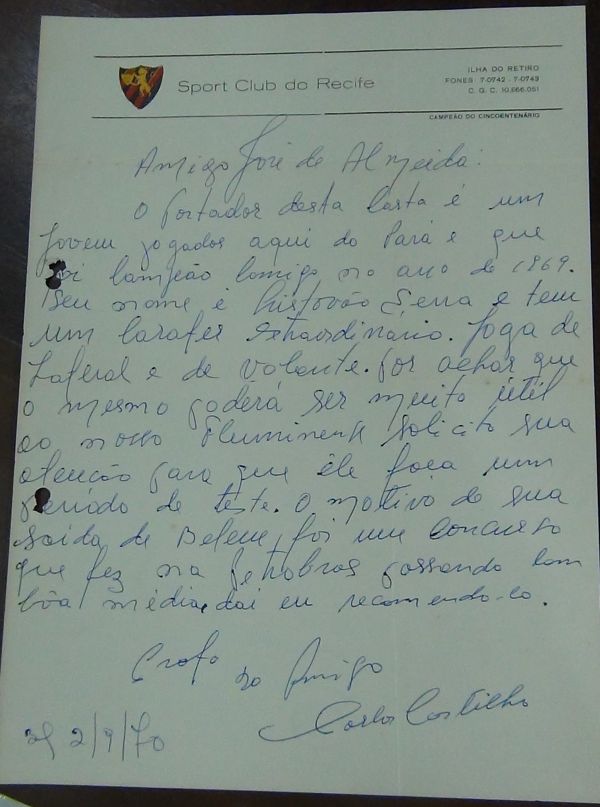 Sport Club do Recife
ILHA DO RETIRO
FONES: 7-0742 - 7-0743
C. G. C. 10.866.051
CAMPEÃO DO CINCOENTENÁRIO
Amigo José de Almeida:
O portador desta carta é um
jovem jogador aqui do Pará e que
foi campeão comigo no ano de 1969.
Seu nome é Cristovão Serra e tem
um carater extraordinário. Joga de
Lateral e de volante. Por achar que
o mesmo poderá ser muito útil
ao nosso Fluminense solicito sua
atenção para que êle faça um
período de teste. O motivo de sua
saida de Belem, foi um concurso
que fez na Petrobras passando com
bôa média, daí eu recomendo-lo.
Grato
do Amigo
Carlos Castilho
2/9/70